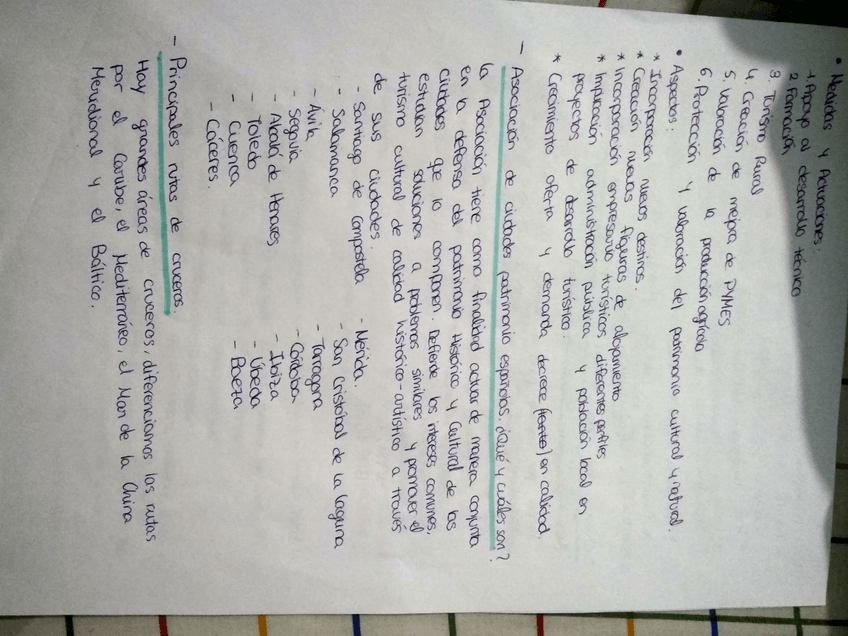 • Medidas y Actuaciones:
1. Apoyo al desarrollo técnico
2. Formación
3. Turismo Rural
4. Creación de mejora de PYMES
5. Valoración de la producción agrícola
6. Protección y valoración del patrimonio cultural y natural.
• Aspectos:
* Incorporación nuevos destinos.
* Creación nuevas figuras de alojamiento
* Incorporación empresario turísticos diferentes perfiles
* Implicación administración pública y población local en
proyectos de desarrollo turístico.
* Crecimiento oferta y demanda decrece en calidad.
- Asociación de ciudades patrimonio españolas. ¿Qué y cuáles son?
La Asociación tiene como finalidad actuar de manera conjunta
en la defensa del patrimonio Histórico y Cultural de las
ciudades que lo componen. Defiende los intereses comunes,
estudian soluciones a problemas similares y promover el
turismo cultural de calidad histórico-artístico a través
de sus ciudades.
- Santiago de Compostela - Mérida.
- Salamanca - San Cristóbal de la Laguna
- Ávila - Tarragona
- Segovia - Córdoba
- Alcalá de Henares - Ibiza
- Toledo - Úbeda
- Cuenca - Baeza
- Cáceres.
- Principales rutas de cruceros.
Hay grandes áreas de cruceros, diferenciamos las rutas
por el Caribe, el Mediterráneo, el Mar de la China
Meridional y el Báltico.